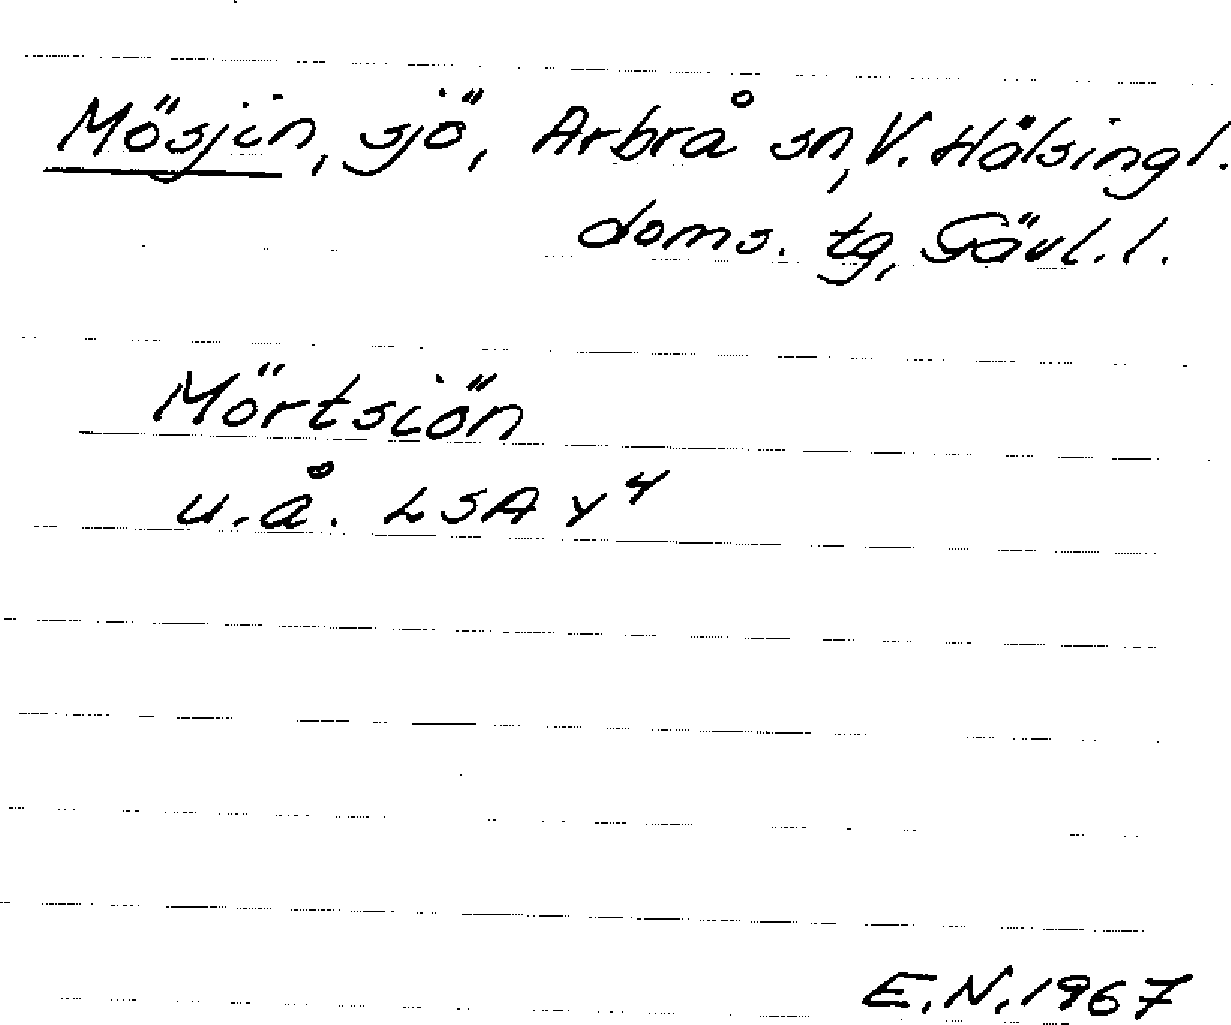 Mösjin, sjö, Arbrå sn, V. Hälsingl.
doms. tg, Gävl. l.
Mörtsiön
u.å. LSA Y⁴
E.N. 1967